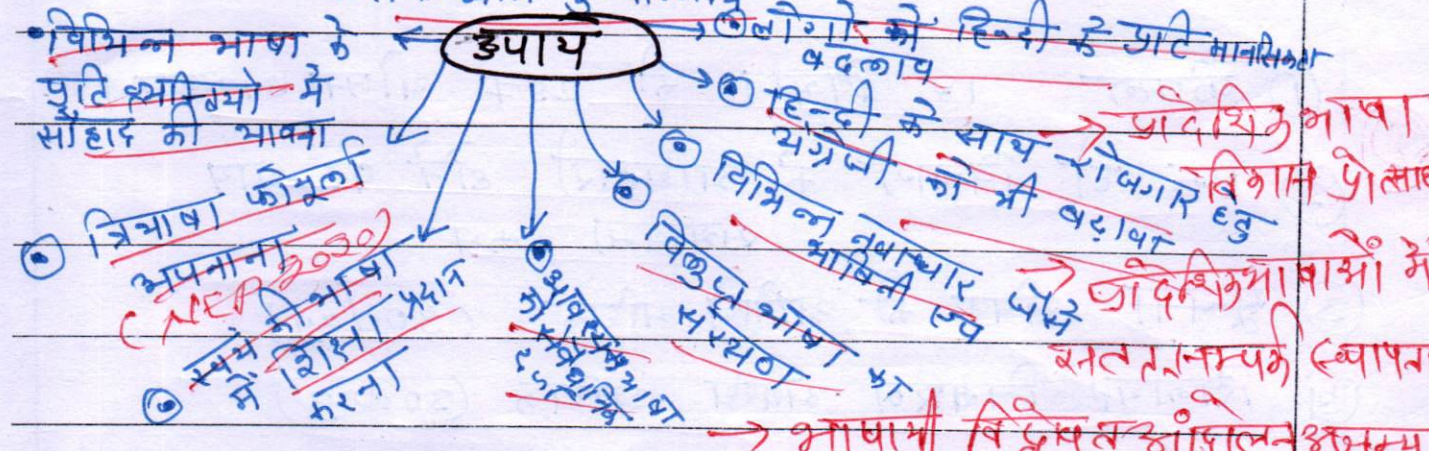 उपाय
• विभिन्न भाषा के
प्रति व्यक्तियो में
सौहाद की भावना
त्रिभाषा फोर्मूला
अपनाना
(NEP 2020)
स्वयं की भाषा
में शिक्षा प्रदान
करना
आवश्यक भाषा
को संवैधानिक
दर्जा
विलुप्त भाषा का
सरंक्षण
विभिन्न नवाचार जैसे
भाषिनी एप
हिन्दी के साथ रोजगार हेतु
अंग्रेजी को भी बढ़ावा
लोगो को हिन्दी के प्रति मानसिकता
बदलाव
→ प्रादेशिक भाषा
विकास प्रोत्साह
→ प्रादेशिक भाषाओं में
सतत सम्पर्क स्थापन
→ भाषायी आंदोलन